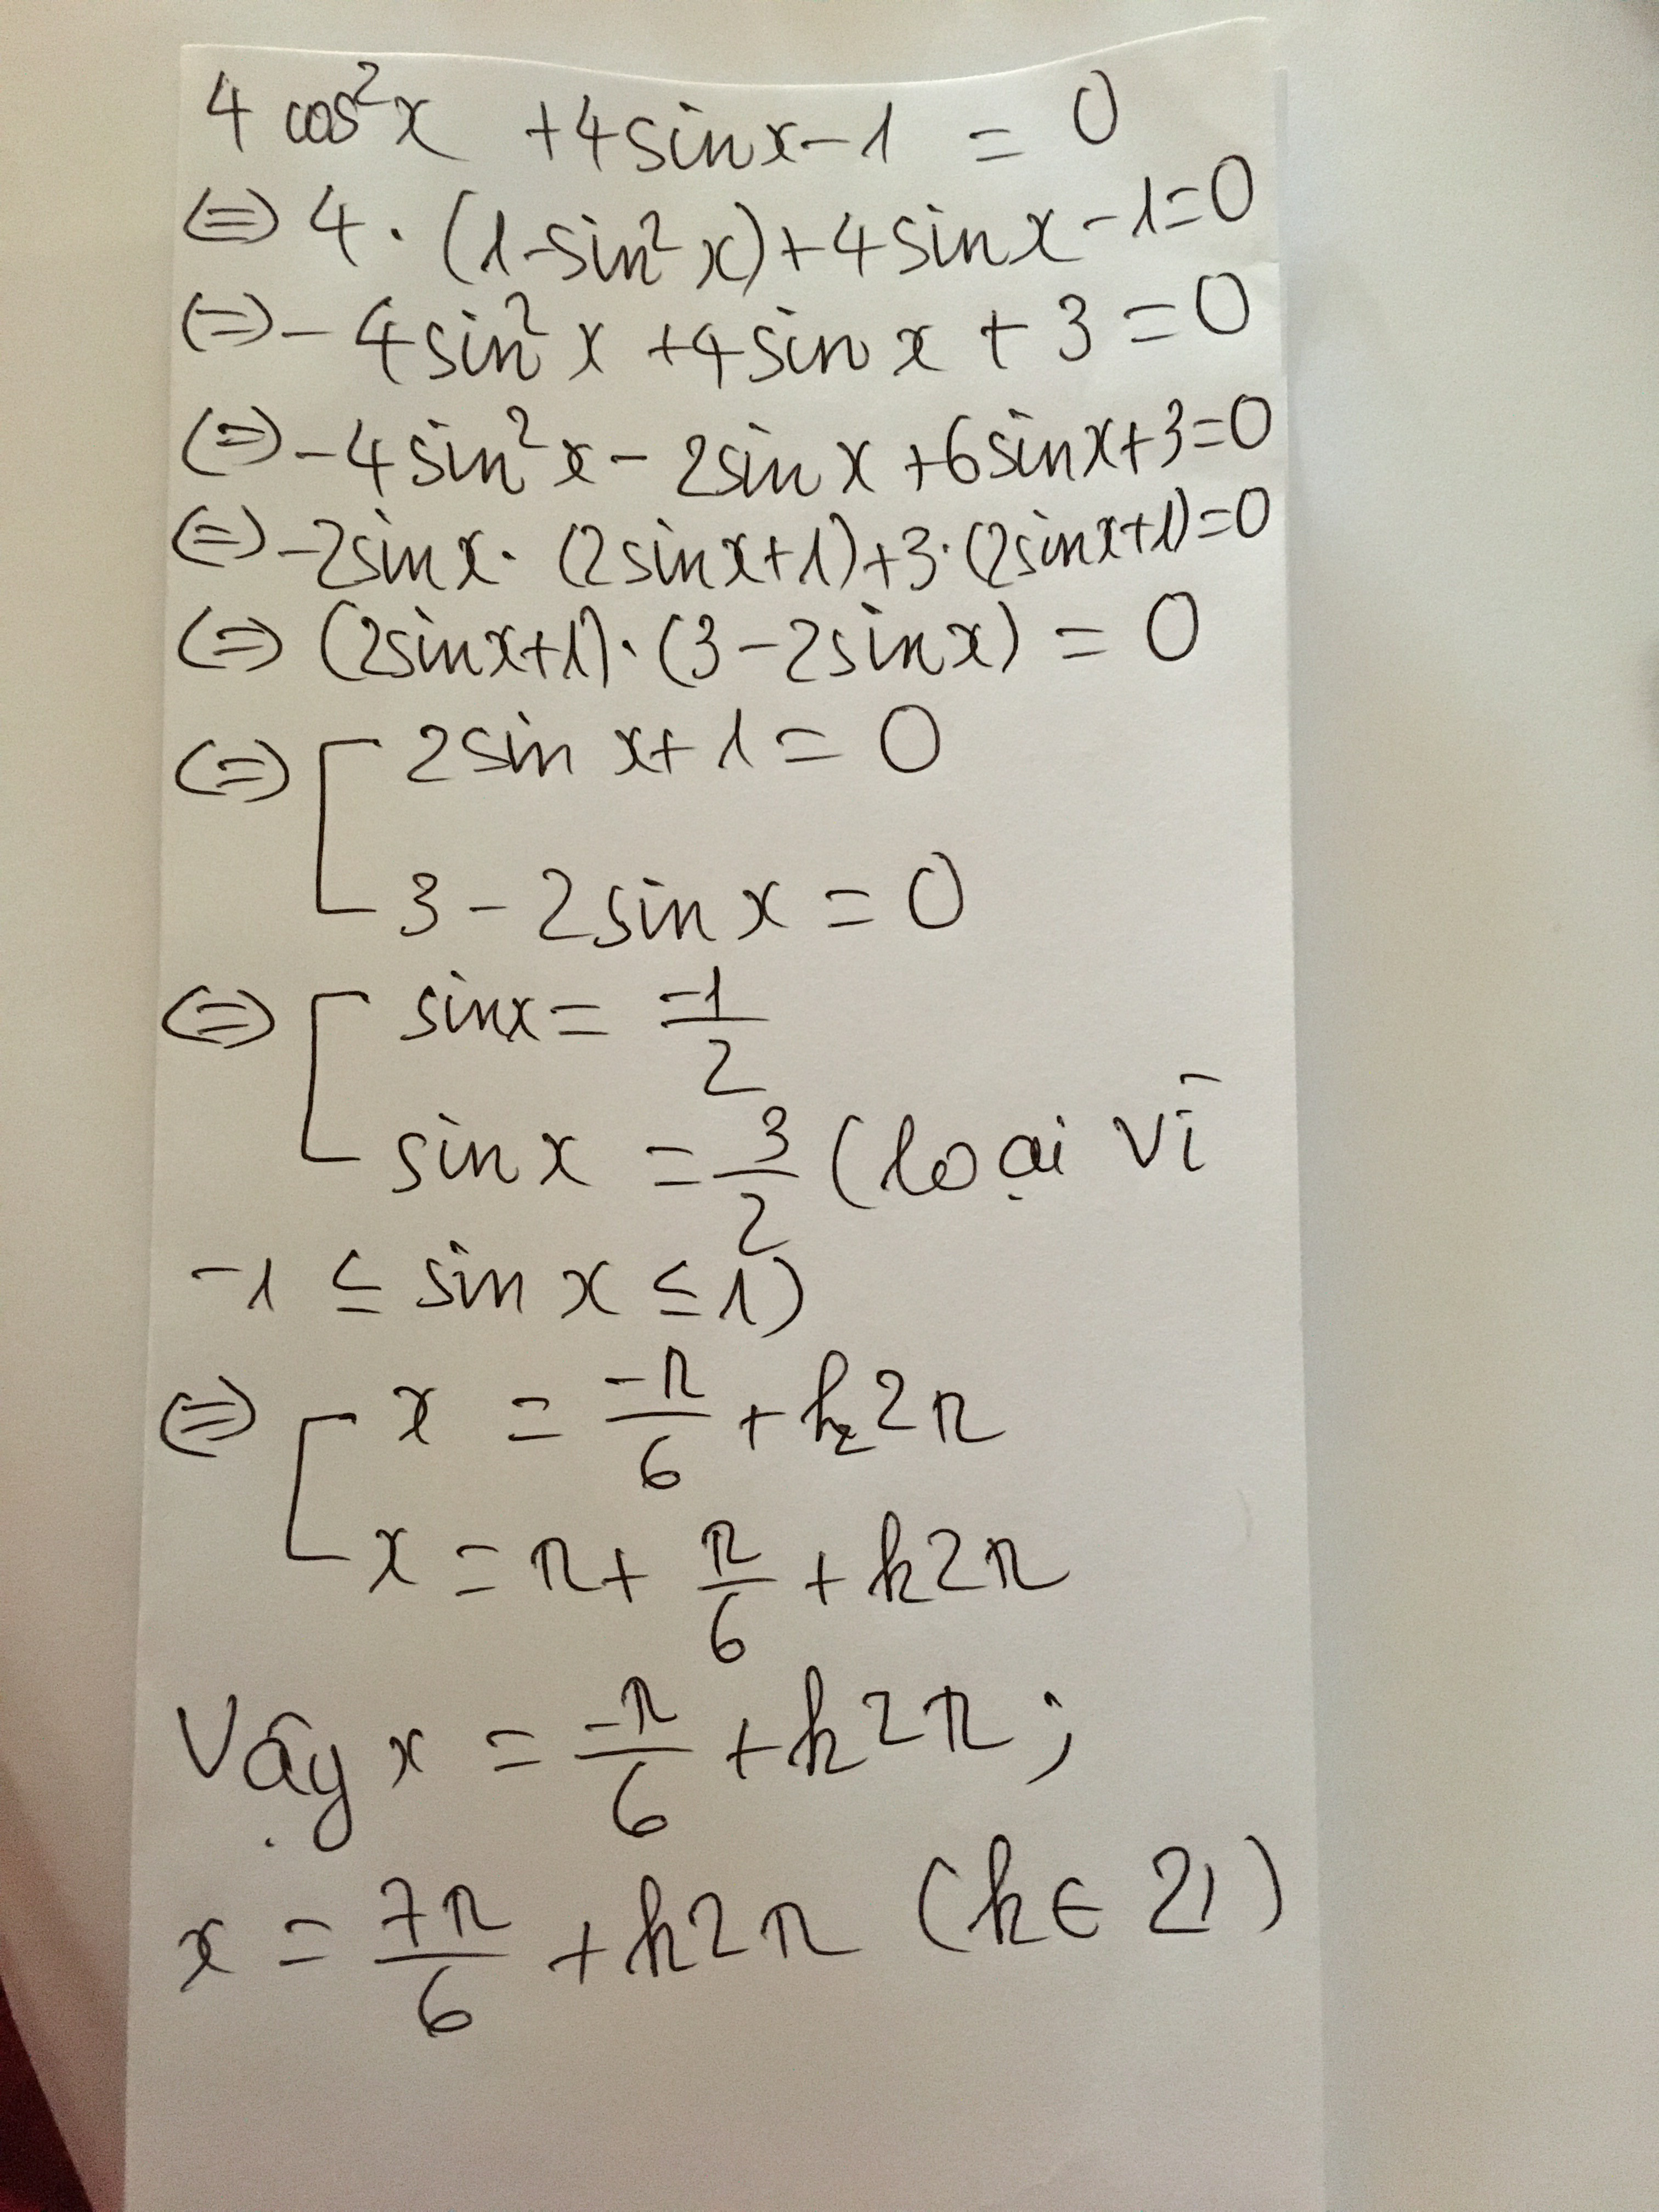 4 cos²x + 4 sin x - 1 = 0
(=) 4 . (1 - sin²x) + 4 sin x - 1 = 0
(=) - 4 sin²x + 4 sin x + 3 = 0
(=) - 4 sin²x - 2 sin x + 6 sin x + 3 = 0
(=) - 2 sin x . (2 sin x + 1) + 3 . (2 sin x + 1) = 0
(=) (2 sin x + 1) . (3 - 2 sin x) = 0
(=) [ 2 sin x + 1 = 0
3 - 2 sin x = 0
(=) [ sin x = -1/2
sin x = 3/2 (loại vì
-1 ≤ sin x ≤ 1)
(=) [ x = -π/6 + k2π
x = π + π/6 + k2π
Vậy x = -π/6 + k2π ;
x = 7π/6 + k2π (k ∈ ℤ)